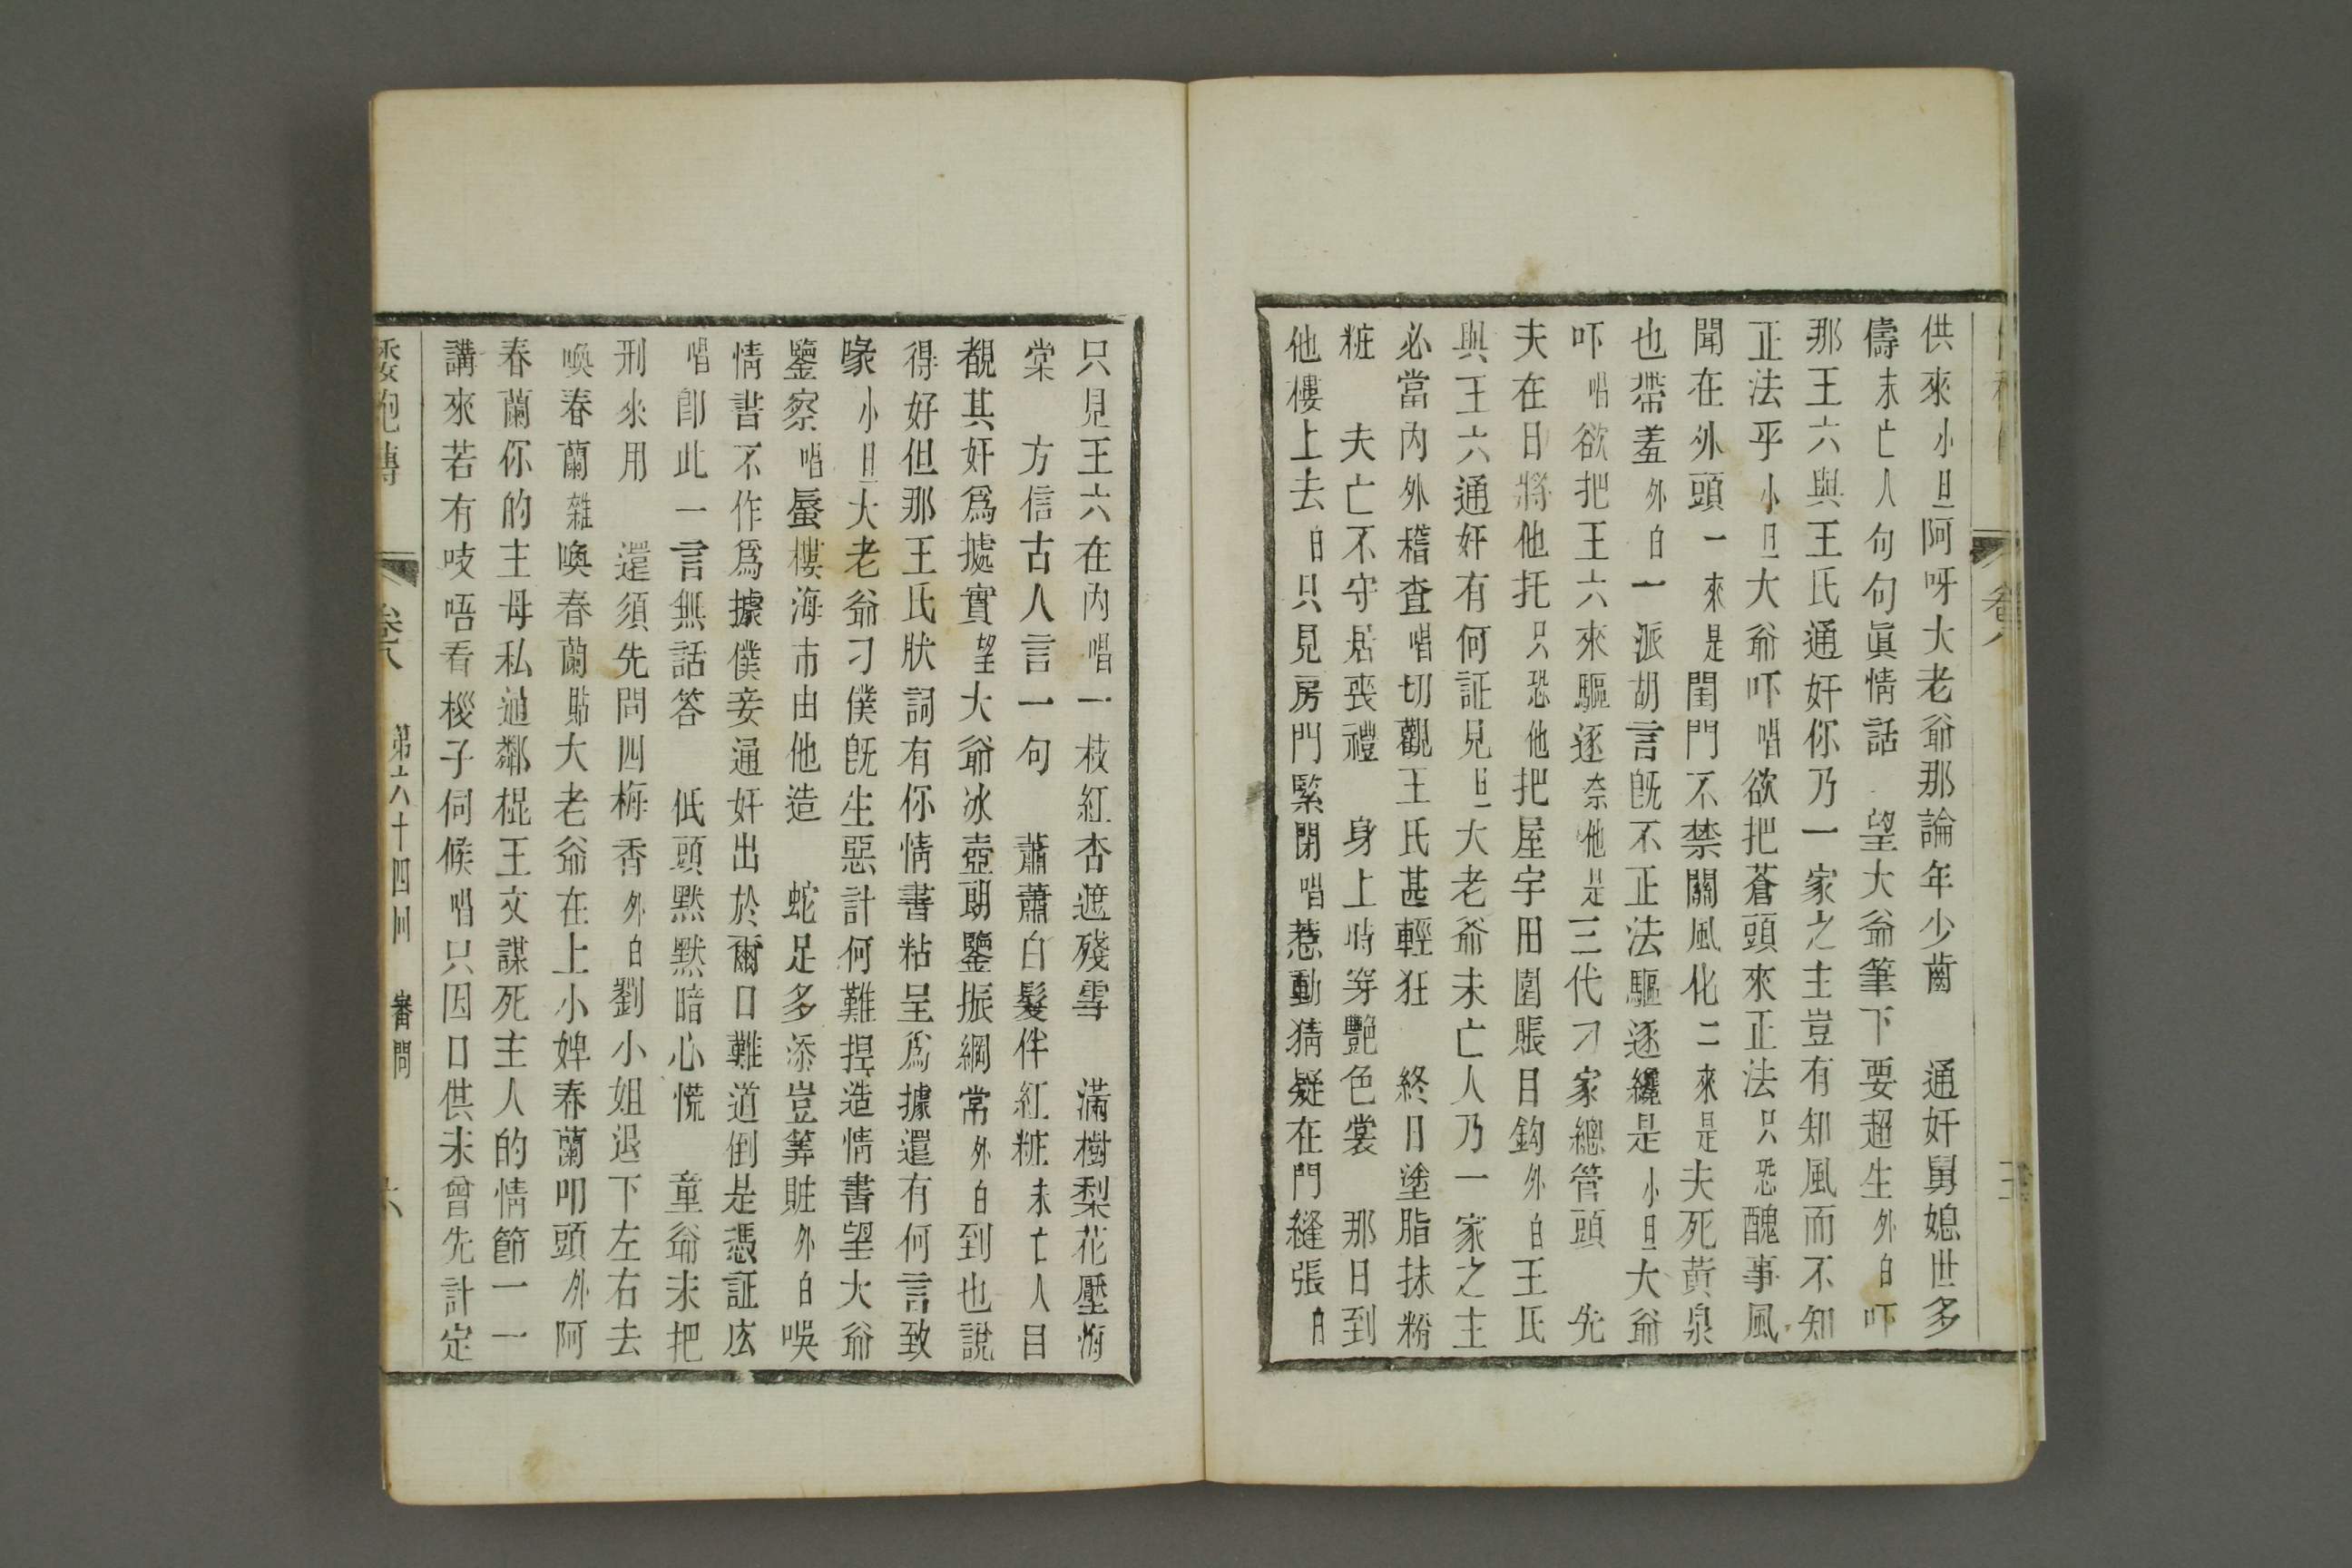 供來小旦阿呀大老爺那論年少齒　通奸舅媳世多
儔末亡人句句眞情話　望大爺筆下要超生外白吓
那王六與王氏通奸你乃一家之主豈有知風而不知
正法乎小旦大爺吓唱欲把蒼頭來正法只恐醜事風
聞在外頭一來是閨門不禁關風化二來是夫死黃泉
也帶羞外白一派胡言旣不正法驅逐纔是小旦大爺
吓唱欲把王六來驅逐奈他是三代刁家總管頭　先
夫在日將他托只恐他把屋宇田園賬目鈎外白王氏
與王六通奸有何証見旦大老爺未亡人乃一家之主
必當內外稽查唱切觀王氏甚輕狂　終日塗脂抹粉
粧　夫亡不守居喪禮　身上時穿艷色裳　那日到
他樓上去白只見房門緊閉唱惹動猜疑在門縫張白
只見王六在內唱一枝紅杏遮殘雪　滿樹梨花壓海
棠　方信古人言一句　蕭蕭白髮伴紅粧未亡人目
覩其奸爲㨿實望大爺冰壺朗鑒振綱常外白到也說
得好但那王氏狀詞有你情書粘呈爲據還有何言致
喙小旦大老爺刁僕旣生惡計何難揑造情書望大爺
鑒察唱蜃樓海市由他造　蛇足多添豈筭賍外白唉
情書不作爲據僕妾通奸出於爾口難道倒是憑証庅
唱卽此一言無話答　低頭默默暗心慌　童爺未把
刑來用　還須先問四梅香外白劉小姐退下左右去
喚春蘭雜喚春蘭貼大老爺在上小婢春蘭叩頭外阿
春蘭你的主母私通鄰棍王文謀死主人的情節一一
講來若有吱唔看桚子伺候唱只因口供未曾先計定
倭袍傳　卷八　第六十四囘　審問　六